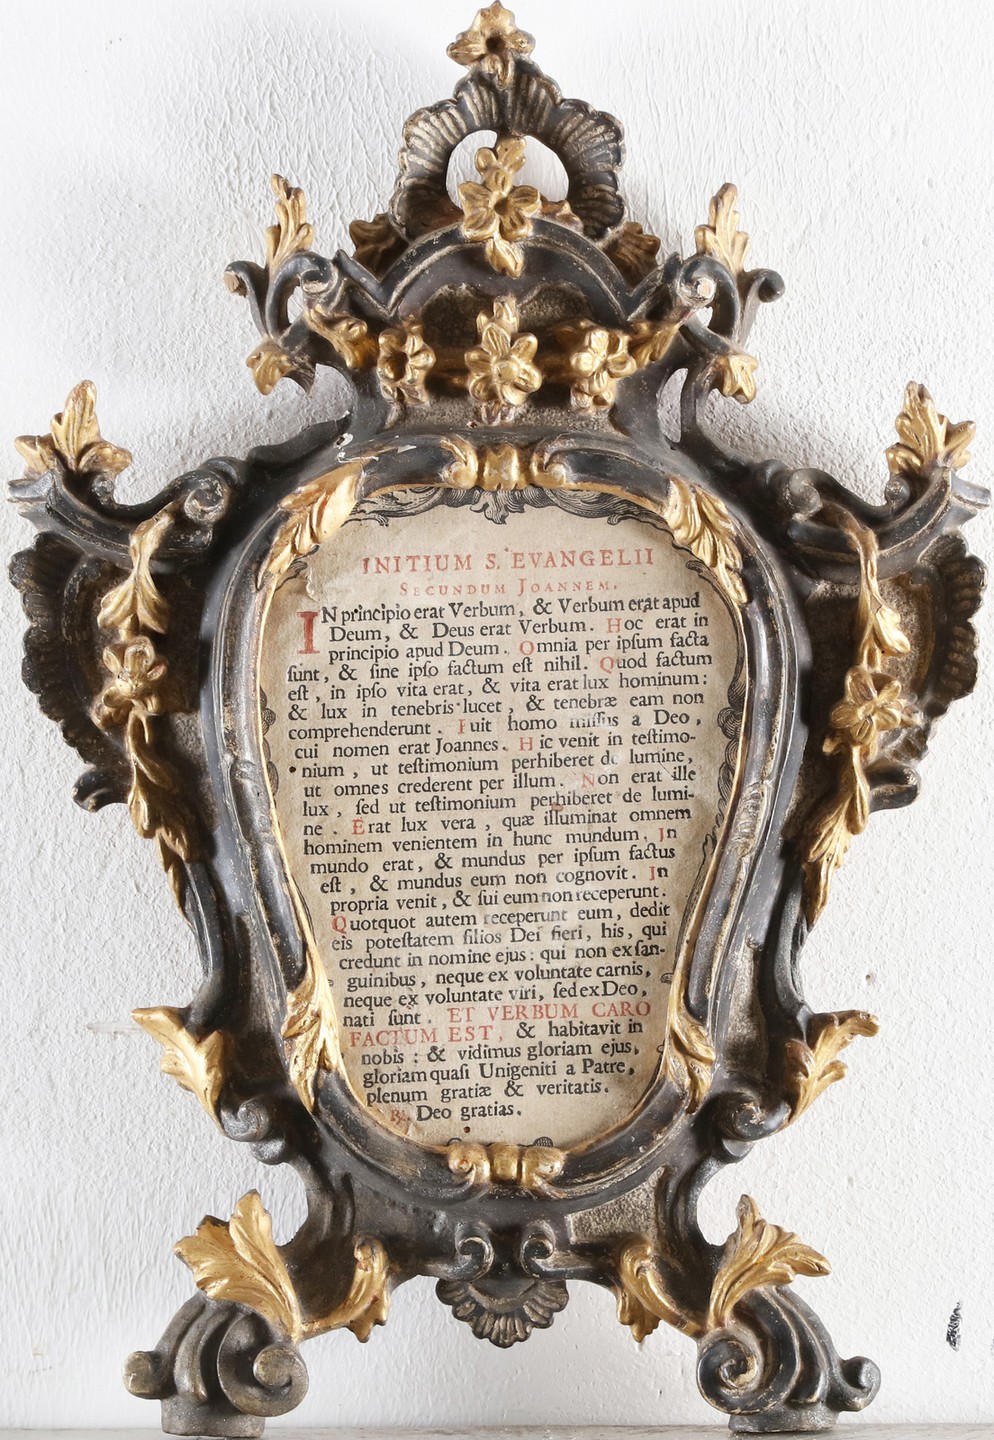 INITIUM S. EVANGELII
SECUNDUM JOANNEM.
IN principio erat Verbum, & Verbum erat apud
Deum, & Deus erat Verbum. Hoc erat in
principio apud Deum. Omnia per ipſum facta
ſunt, & ſine ipſo factum eſt nihil. Quod factum
eſt, in ipſo vita erat, & vita erat lux hominum:
& lux in tenebris lucet, & tenebræ eam non
comprehenderunt. Fuit homo miſſus a Deo,
cui nomen erat Joannes. Hic venit in teſtimo-
nium, ut teſtimonium perhiberet de lumine,
ut omnes crederent per illum. Non erat ille
lux, ſed ut teſtimonium perhiberet de lumi-
ne. Erat lux vera, quæ illuminat omnem
hominem venientem in hunc mundum. In
mundo erat, & mundus per ipſum factus
eſt, & mundus eum non cognovit. In
propria venit, & ſui eum non receperunt.
Quotquot autem receperunt eum, dedit
eis poteſtatem filios Dei fieri, his, qui
credunt in nomine ejus: qui non ex ſan-
guinibus, neque ex voluntate carnis,
neque ex voluntate viri, ſed ex Deo,
nati ſunt. ET VERBUM CARO
FACTUM EST, & habitavit in
nobis: & vidimus gloriam ejus,
gloriam quaſi Unigeniti a Patre,
plenum gratiæ & veritatis.
℟. Deo gratias.